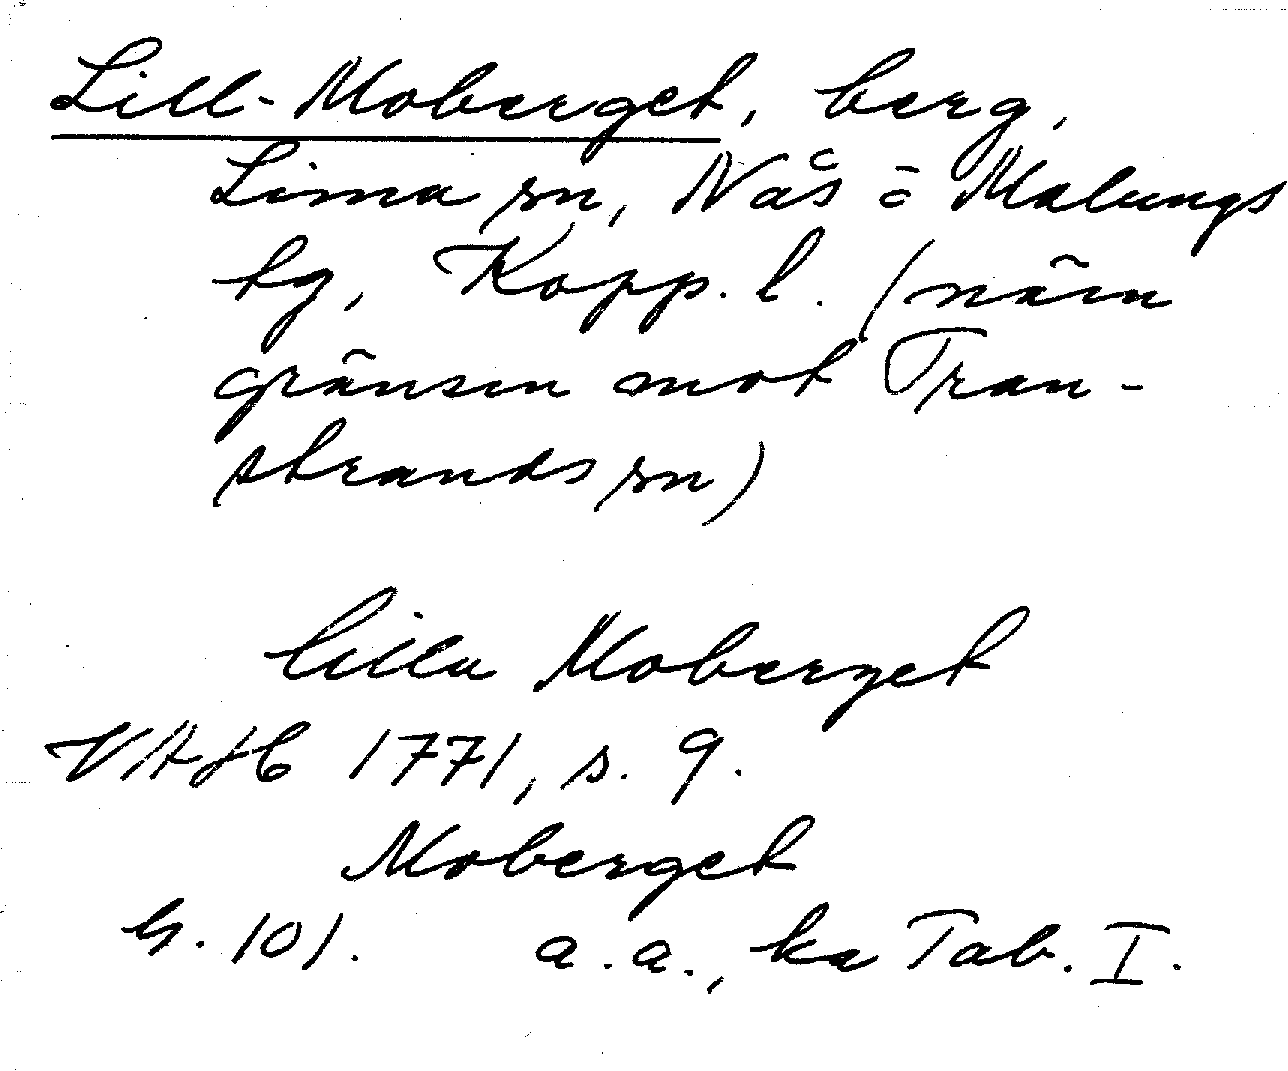 Lill-Moberget, berg,
Lima sn, Nås o Malungs
tg, Kopp. l. (näm
gränsen mot Tran-
strands sn)
Lilla Moberget
VAH 1771, s. 9.
Moberget
G. 101. a.a., ka Tab. I.